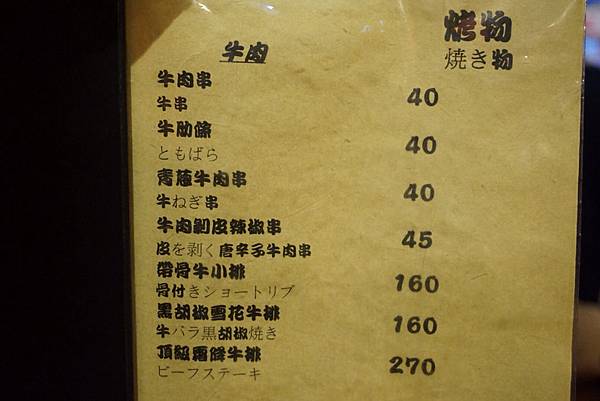 烤物
焼き物
牛肉
牛肉串
牛串 40
牛肋條
ともばら 40
青蔥牛肉串
牛ねぎ串 40
牛肉剝皮辣椒串
皮を剥く唐辛子牛肉串 45
帶骨牛小排
骨付きショートリブ 160
黑胡椒雪花牛排
牛バラ黒胡椒焼き 160
頂級霜降牛排
ビーフステーキ 270